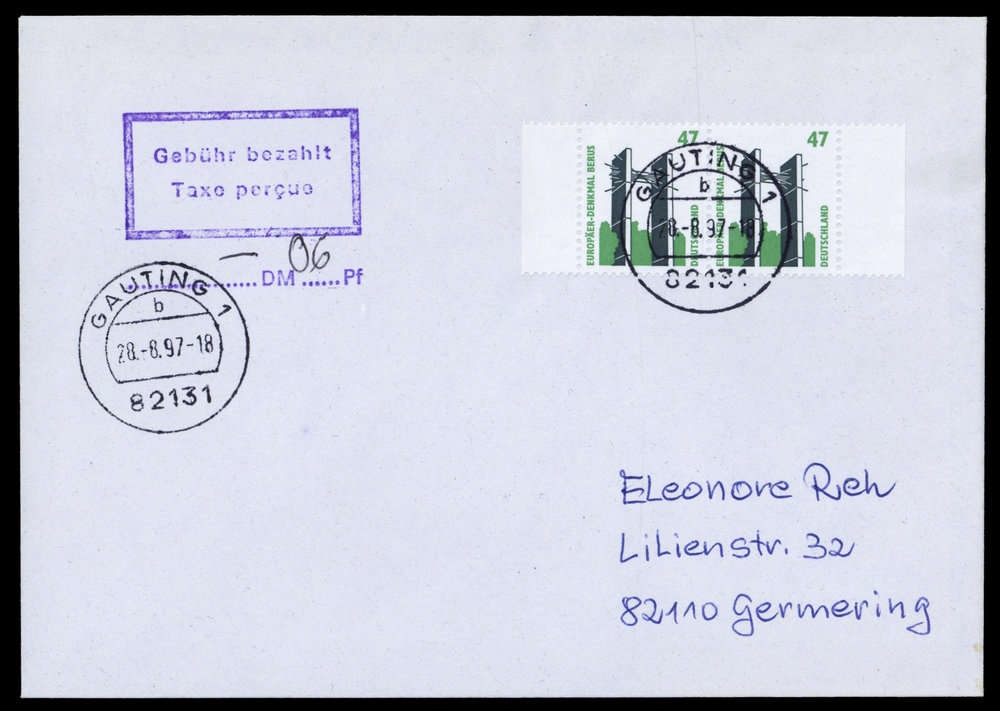 Gebühr bezahlt
Taxe perçue
— DM 06 Pf
GAUTING 1
b
28.-8.97-18
82131
47
EUROPÄER-DENKMAL BERUS
DEUTSCHLAND
47
EUROPÄER-DENKMAL BERUS
DEUTSCHLAND
GAUTING 1
b
28.-8.97-18
82131
Eleonore Reh
Lilienstr. 32
82110 Germering